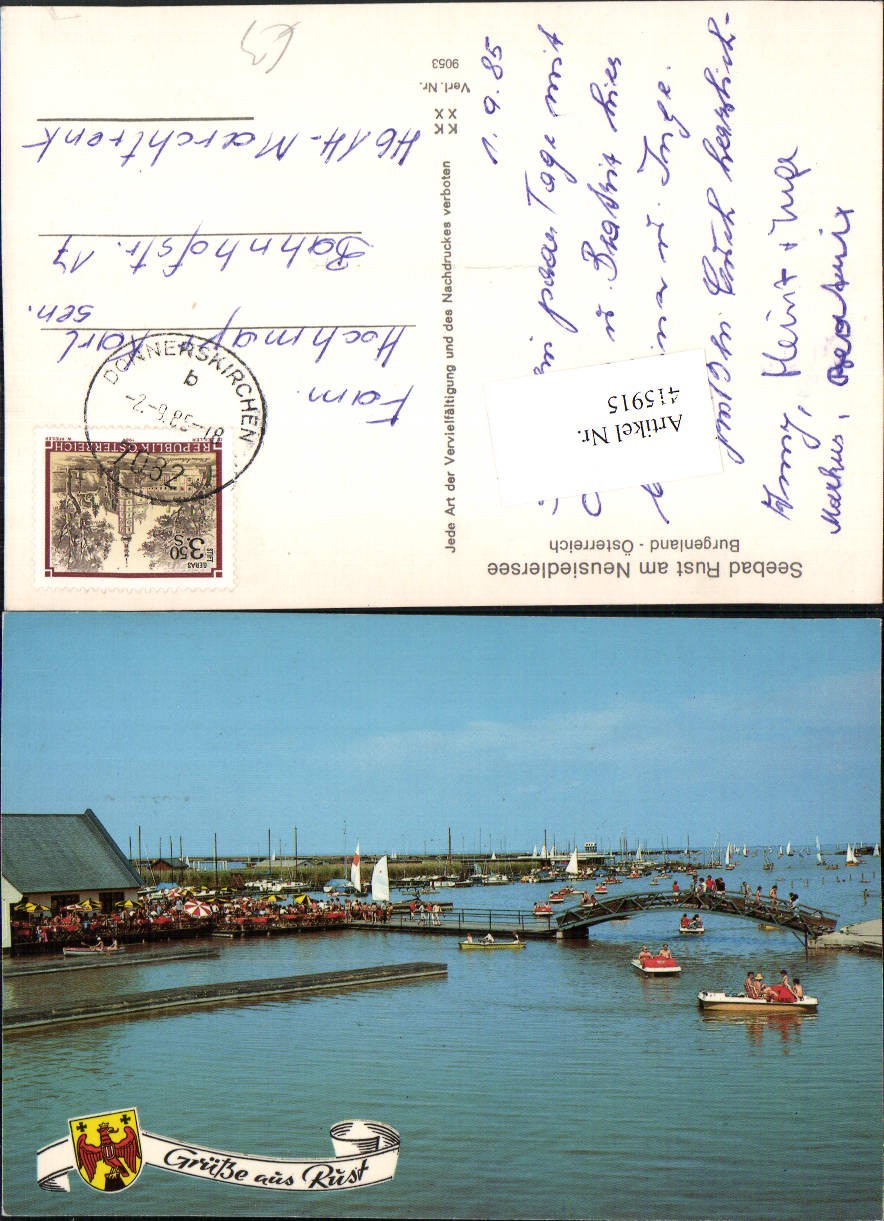 Seebad Rust am Neusiedlersee
Burgenland - Österreich
1.9.85
paar Tage mit
u. Beatrix hier
u. Inge.
Euch herzlich-
Heinz + Inge
Markus, Beatrix
Artikel Nr.
415915
Jede Art der Vervielfältigung und des Nachdruckes verboten
KK
XX
Verl. Nr.
9053
STIFT
GERAS
3.50
S
REPUBLIK ÖSTERREICH
DONNERSKIRCHEN
b
-2.-9.85-18
7082
Fam.
Hochmayr Karl
sen.
Bahnhofstr. 17
4614-Marchtrenk
Grüße aus Rust